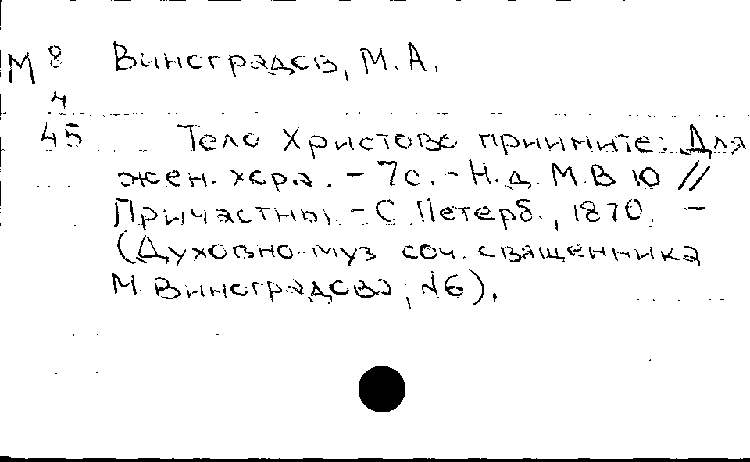 М 8 Виноградов, М. А.
4
45 Тело Христово приимите: Для
жен. хора. – 7 с. – Н. д. М. В. 10 //
Причастны. – С. Петерб., 1870. –
(Духовно-муз. соч. священника
М. Виноградова; №6).